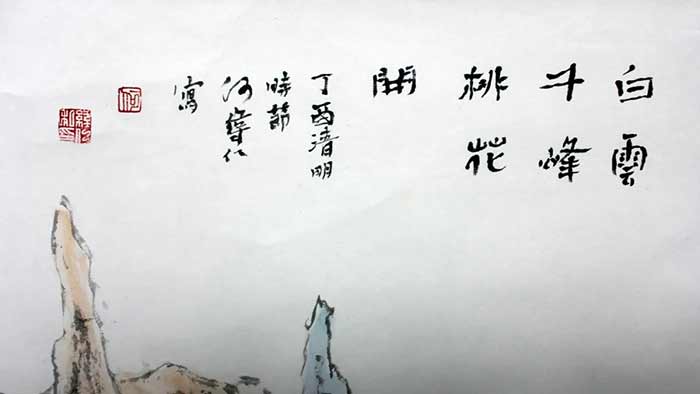 白雲
千峰
桃花
開
丁酉清明
時節
何
寫
何